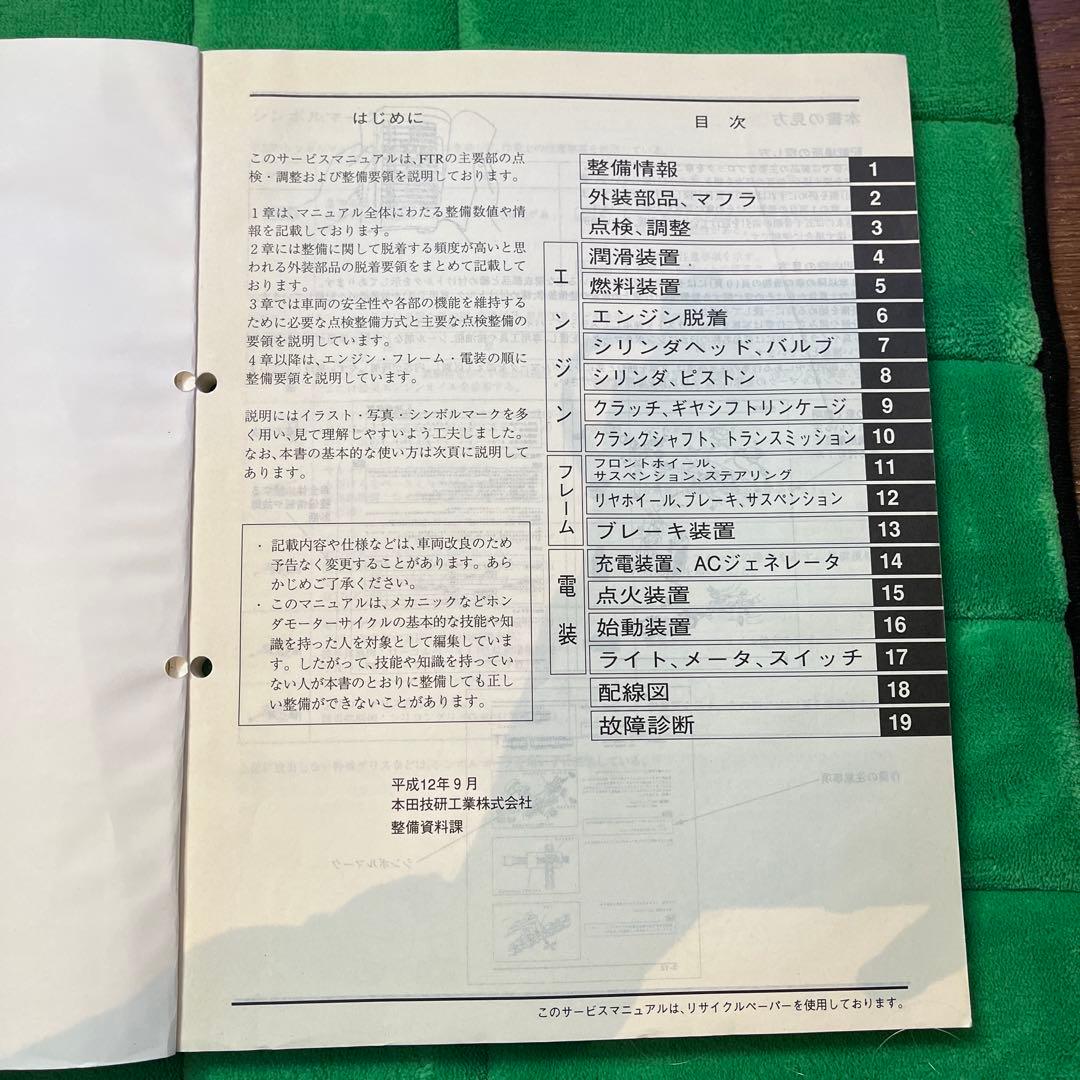 はじめに
このサービスマニュアルは、FTRの主要部の点
検・調整および整備要領を説明しております。
1章は、マニュアル全体にわたる整備数値や情
報を記載しております。
2章には整備に関して脱着する頻度が高いと思
われる外装部品の脱着要領をまとめて記載して
おります。
3章では車両の安全性や各部の機能を維持する
ために必要な点検整備方式と主要な点検整備の
要領を説明しています。
4章以降は、エンジン・フレーム・電装の順に
整備要領を説明しています。
説明にはイラスト・写真・シンボルマークを多
く用い、見て理解しやすいよう工夫しました。
なお、本書の基本的な使い方は次頁に説明して
あります。
・ 記載内容や仕様などは、車両改良のため
予告なく変更することがあります。あら
かじめご了承ください。
・ このマニュアルは、メカニックなどホン
ダモーターサイクルの基本的な技能や知
識を持った人を対象として編集していま
す。したがって、技能や知識を持ってい
ない人が本書のとおりに整備しても正し
い整備ができないことがあります。
平成12年9月
本田技研工業株式会社
整備資料課
目次
整備情報 1
外装部品、マフラ 2
点検、調整 3
エンジン
潤滑装置 4
燃料装置 5
エンジン脱着 6
シリンダヘッド、バルブ 7
シリンダ、ピストン 8
クラッチ、ギヤシフトリンケージ 9
クランクシャフト、トランスミッション 10
フレーム
フロントホイール、
サスペンション、ステアリング 11
リヤホイール、ブレーキ、サスペンション 12
ブレーキ装置 13
電装
充電装置、ACジェネレータ 14
点火装置 15
始動装置 16
ライト、メータ、スイッチ 17
配線図 18
故障診断 19
このサービスマニュアルは、リサイクルペーパーを使用しております。